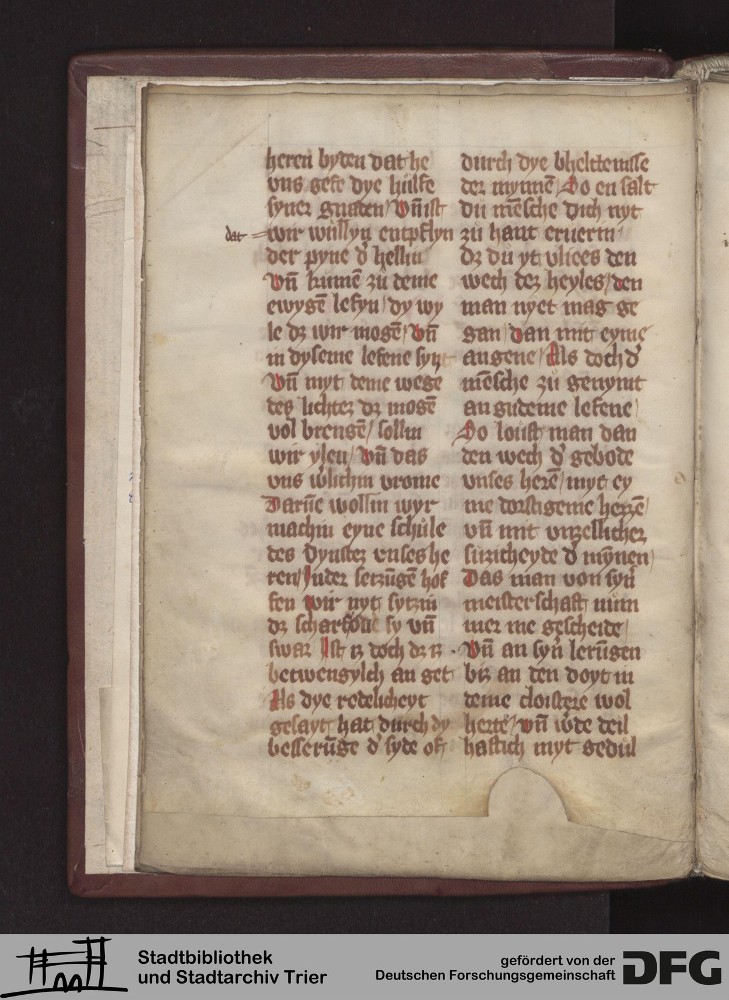 heren byden dat he
vns gefe dye hulfe
syner gnaden / Vn̄ ist
dat
wir wullyn entpflyn
der pyne d' hellin
Vn̄ kumē zů deme
ewygē lefyn / dy wy
le dz wir mogē / Vn̄
in dyseme lefene syn
Vn̄ myt deme wege
des lichtez dz mogē
vol brengē / sollin
wir ylen / Vn̄ das
vns w̓lichin vrome
Darūe wollin wyr
machin eyne schůle
des dynstez vnses he
ren / In der setzūgē hof
fen wir nyt sytzin
dz scharf od' sy vn̄
swar Ist iz doch dz iz
betwengylch an get
Als dye redelicheyt
gesayt hat durch dy
besserūge d' syde of
durch dye bhelttenisse
der mynnē / So en salt
dů mēsche dich nyt
zů hant eruerin
dz dů yt vliees den
wech dez heyles / den
man nyet mag ge
gan / dan mit eyme
angene / Als doch d'
mēsche zů genymt
an gudeme lefene
So louft man dan
den wech d' gebode
vnses herē / myt ey
me dorstigeme herzē
vn̄ mit vnzellicher
suzicheyde d' mȳnen
Das man von syn̓
meisterschaft nům
mer me gescheide
Vn̄ an syn̓ lerūgen
biz an den doyt in
deme cloistere wol
herte / vn̄ w̓de deil
haftich myt gedul
Stadtbibliothek
und Stadtarchiv Trier
gefördert von der
Deutschen Forschungsgemeinschaft
DFG